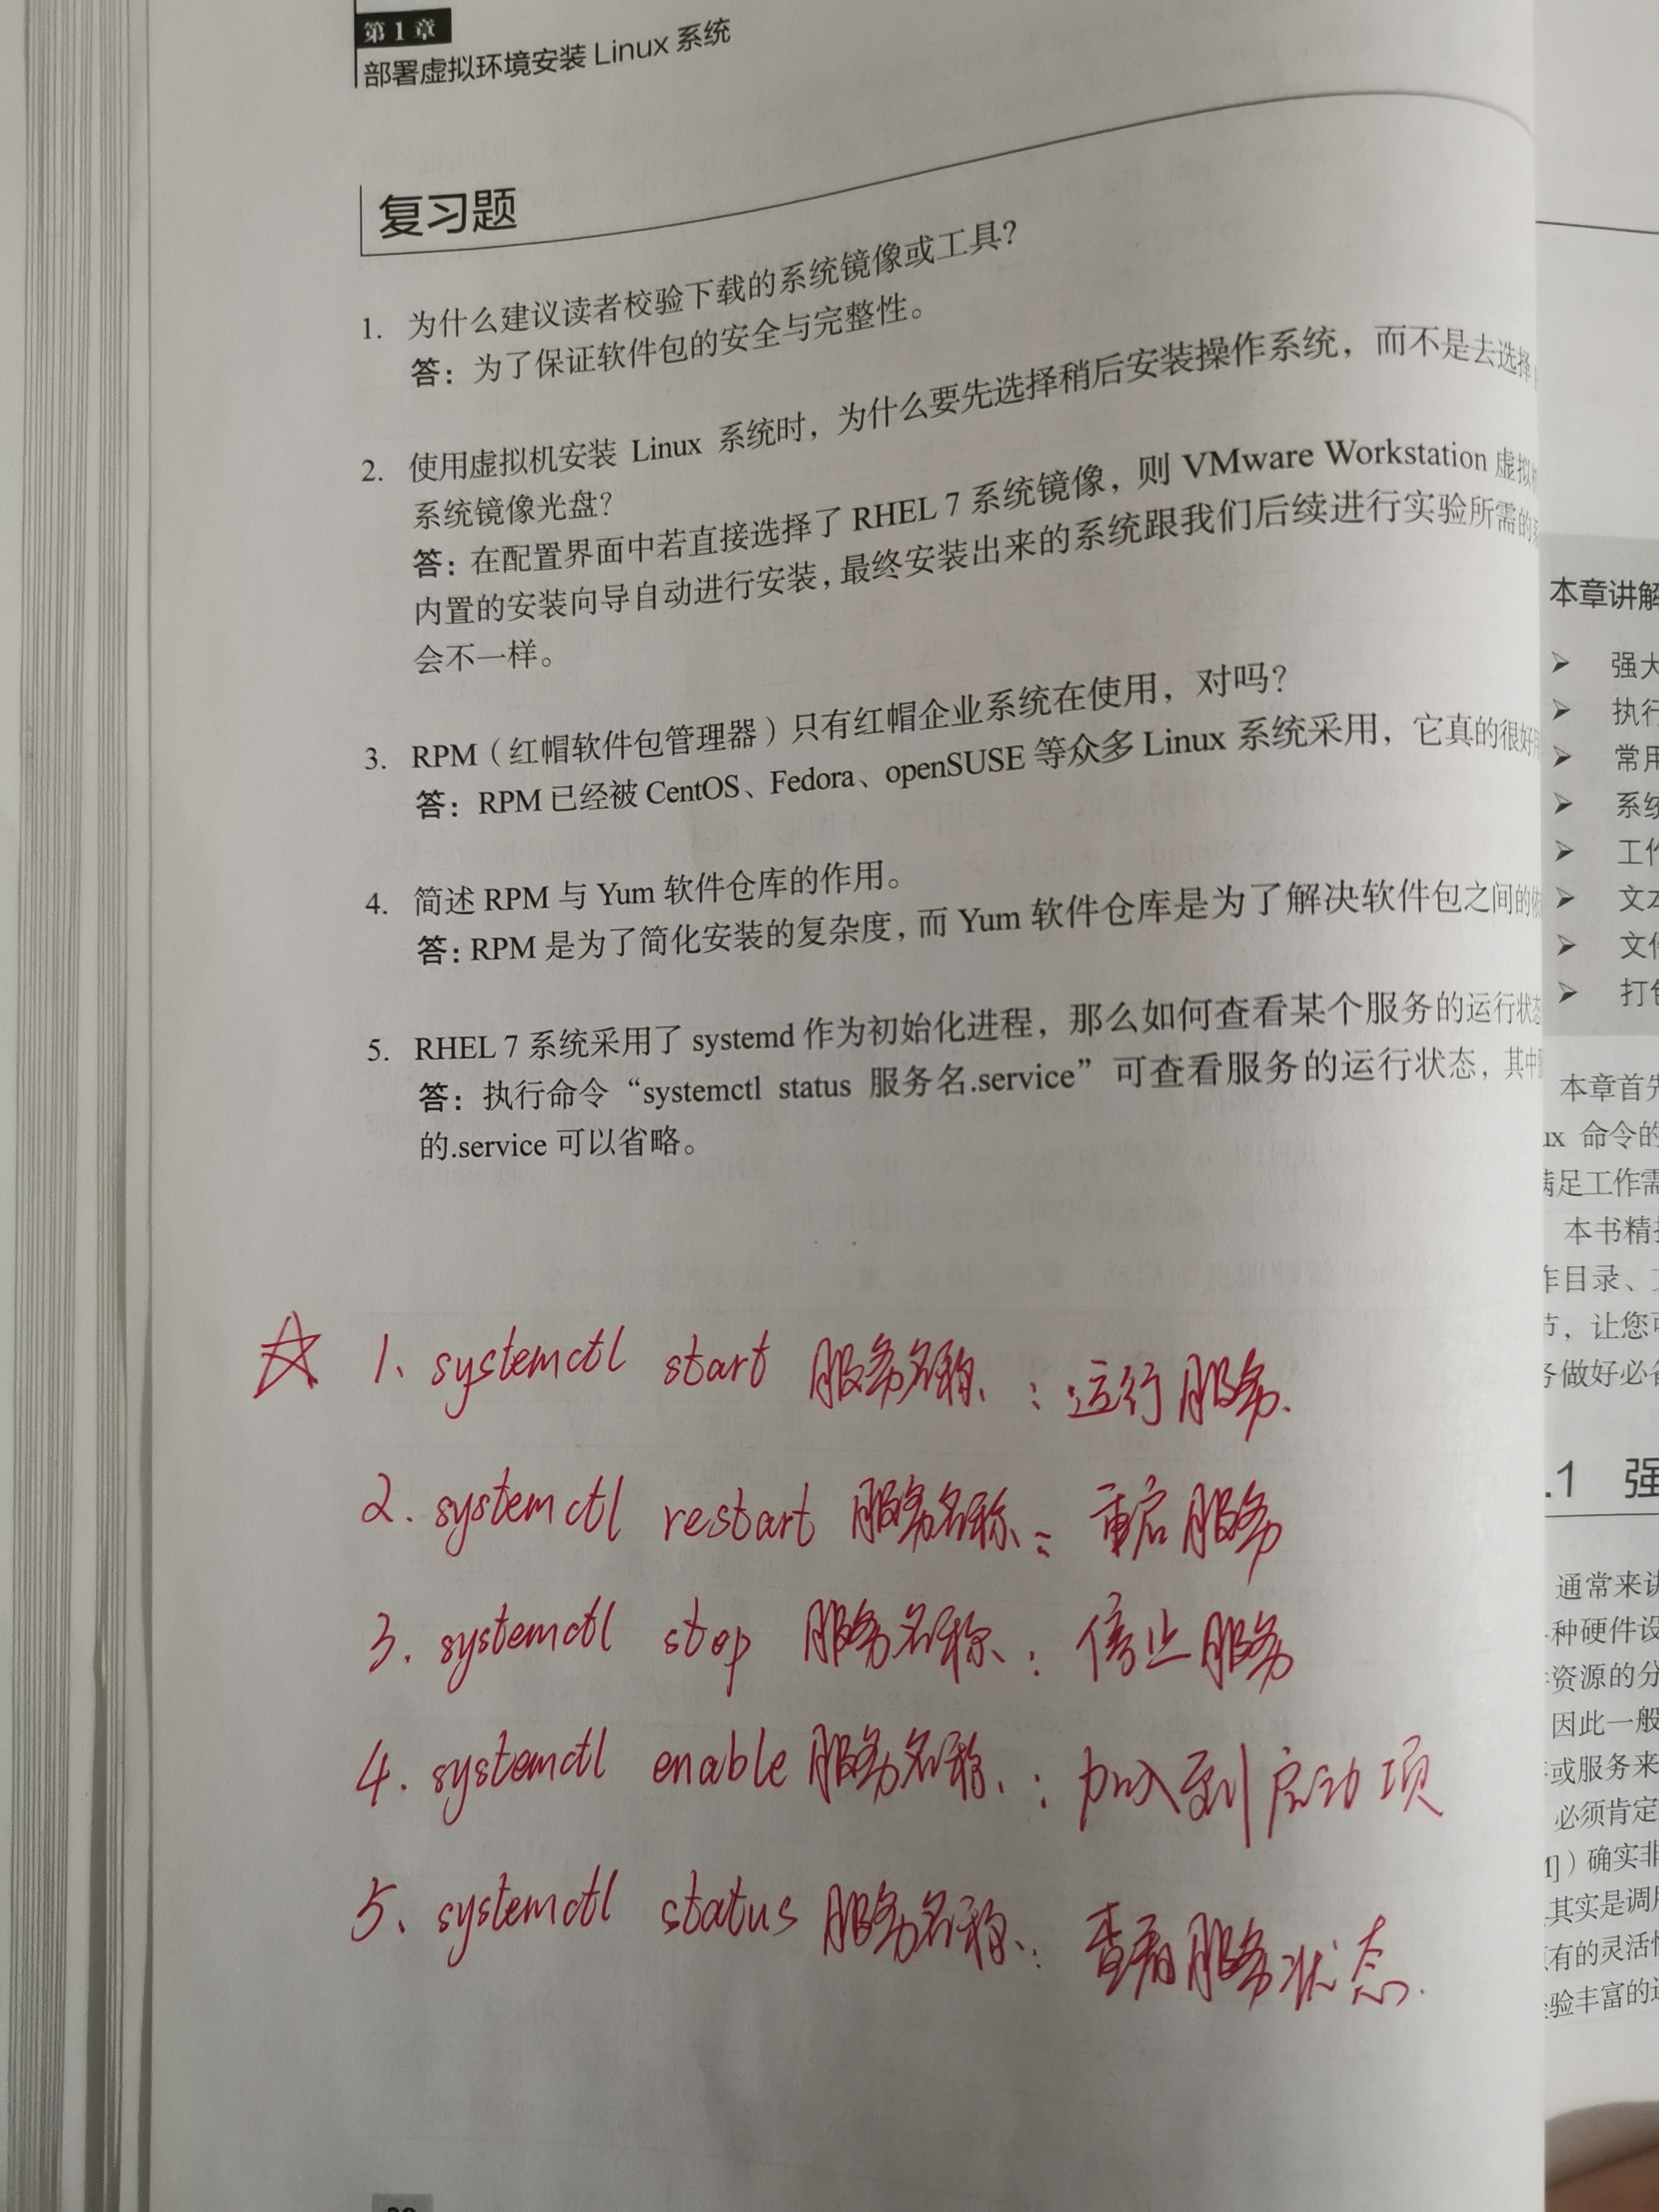 第1章
部署虚拟环境安装 Linux 系统
复习题
1. 为什么建议读者校验下载的系统镜像或工具？
答：为了保证软件包的安全与完整性。
2. 使用虚拟机安装 Linux 系统时，为什么要先选择稍后安装操作系统，而不是去选择
系统镜像光盘？
答：在配置界面中若直接选择了 RHEL 7 系统镜像，则 VMware Workstation 虚拟
内置的安装向导自动进行安装，最终安装出来的系统跟我们后续进行实验所需的
会不一样。
3. RPM（红帽软件包管理器）只有红帽企业系统在使用，对吗？
答：RPM 已经被 CentOS、Fedora、openSUSE 等众多 Linux 系统采用，它真的很好
4. 简述 RPM 与 Yum 软件仓库的作用。
答：RPM 是为了简化安装的复杂度，而 Yum 软件仓库是为了解决软件包之间的
5. RHEL 7 系统采用了 systemd 作为初始化进程，那么如何查看某个服务的运行状态
答：执行命令“systemctl status 服务名.service”可查看服务的运行状态，其中
的.service 可以省略。
☆ 1、systemctl start 服务名称、：运行服务.
2. systemctl restart 服务名称、： 重启服务
3. systemctl stop 服务名称、： 停止服务
4. systemctl enable 服务名称、： 加入到启动项
5、systemctl status 服务名称、： 查看服务状态.
本章讲解
➢ 强大
➢ 执行
➢ 常用
➢ 系统
➢ 工作
➢ 文本
➢ 文件
➢ 打包
本章首先
ux 命令的
满足工作需
本书精挑
作目录、
节，让您可
务做好必备
.1 强
通常来讲
种硬件设
资源的分
因此一般
或服务来
必须肯定
）确实非
其实是调用
有的灵活性
验丰富的运